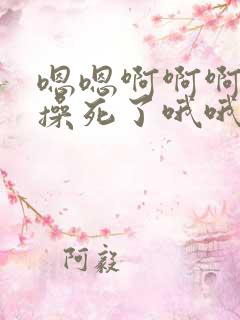 嗯嗯啊啊啊
操死了哦哦
阿毅